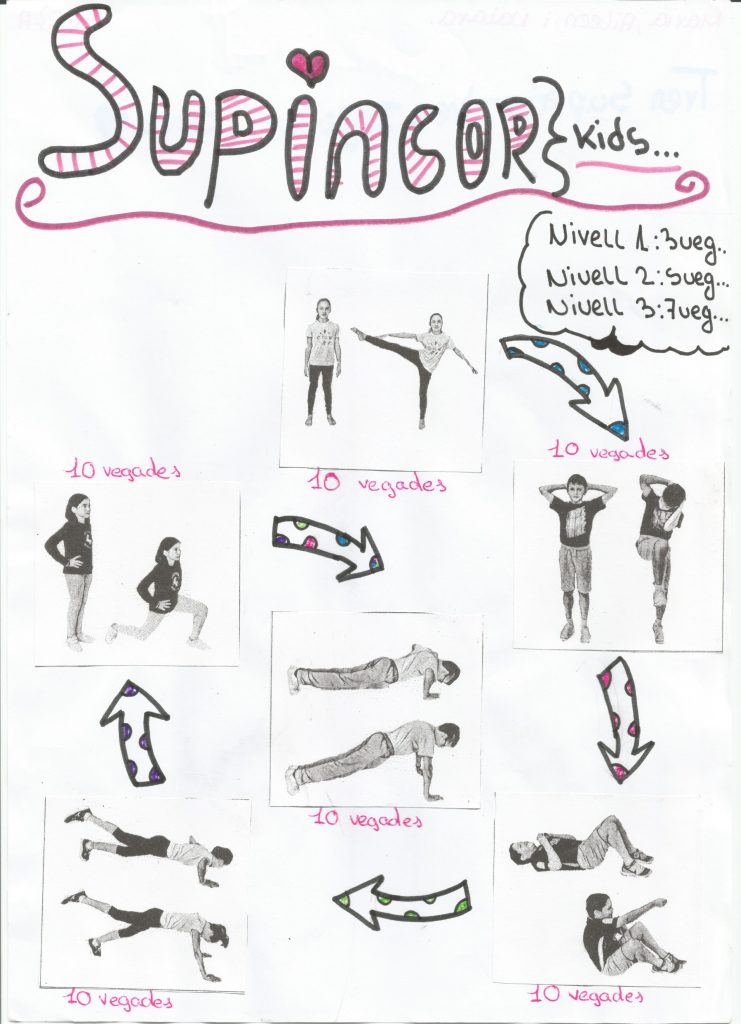 SUPINCOR} Kids...
Nivell 1:3veg..
Nivell 2:5veg...
Nivell 3:7veg...
10 vegades
10 vegades
10 vegades
10 vegades
10 vegades
10 vegades